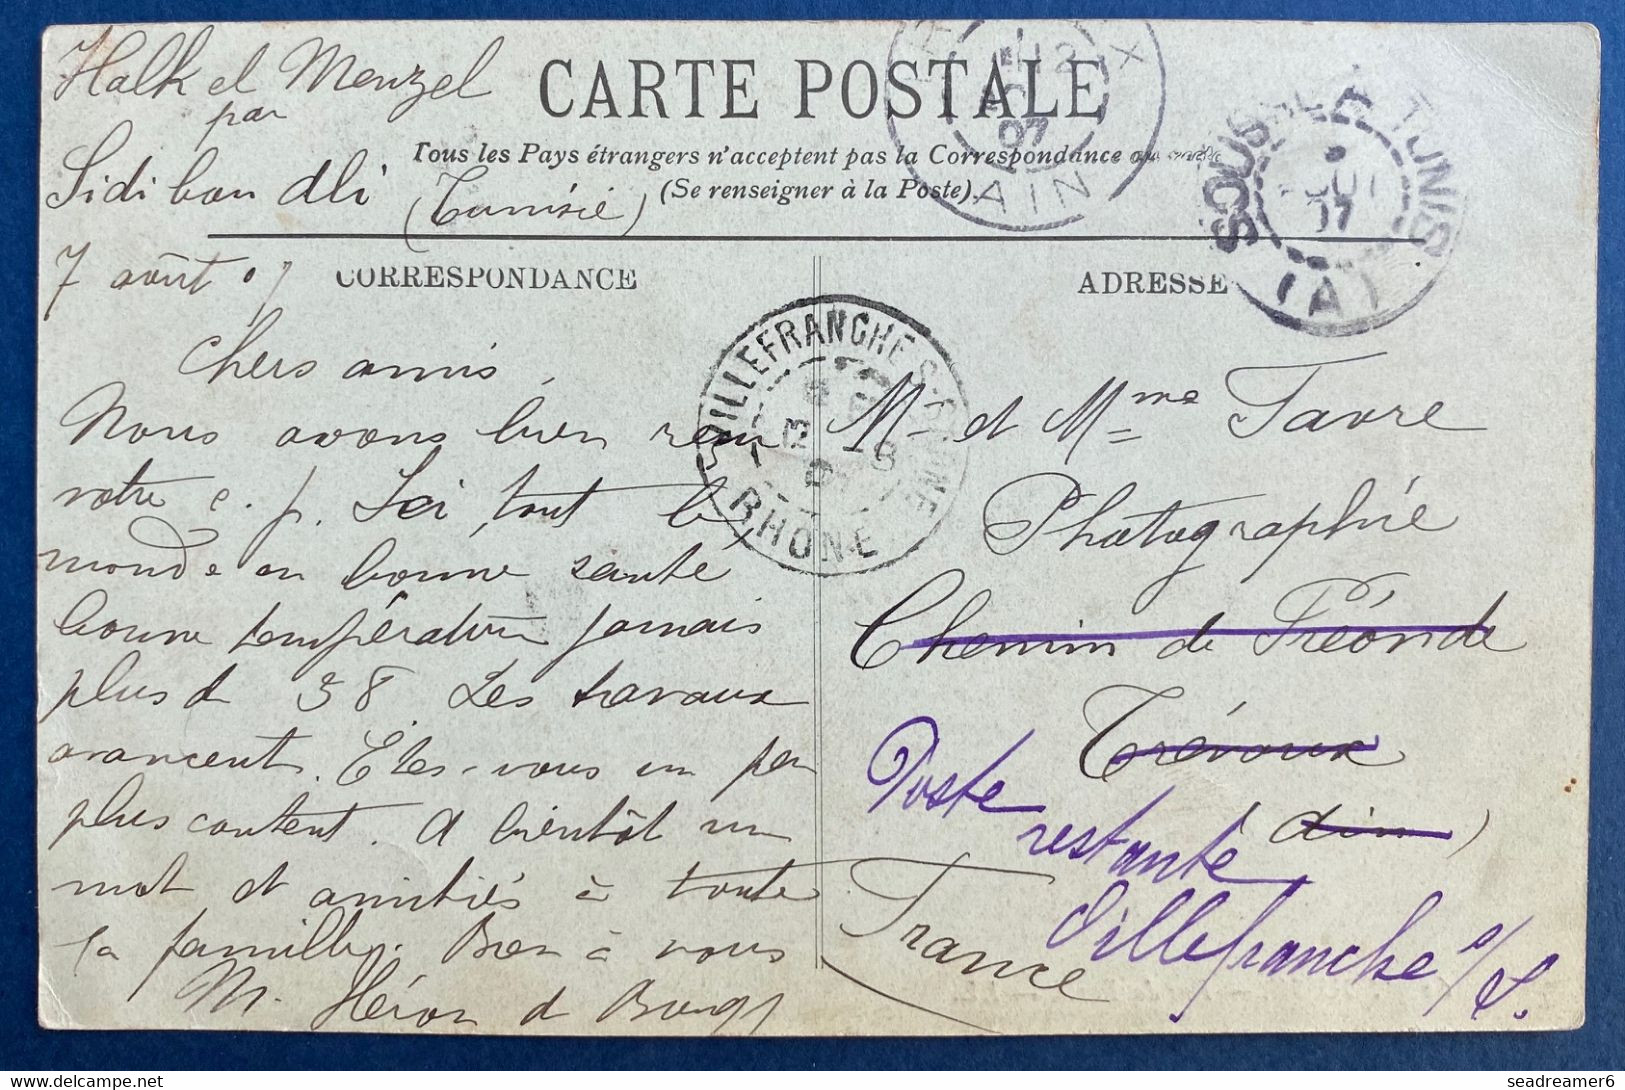 Halk el Menzel
par
Sidi bou Ali (Tunisie)
7 août 07
CARTE POSTALE
Tous les Pays étrangers n'acceptent pas la Correspondance au
(Se renseigner à la Poste).
CORRESPONDANCE
Chers amis,
Nous avons bien reçu
votre c. p. Ici tout le
monde en bonne santé
bonne température jamais
plus de 38 Les travaux
avancent. Etes-vous un peu
plus content. A bientôt un
mot et amitiés à toute
la famille. Bien à vous
M. Héron de
ADRESSE
Mr et Mme Favre
Photographie
Chemin de Fréonde
Trévoux
(Ain)
France
Poste
restante
Villefranche s/S.
TREVOUX
12
07
AIN
SOUSSE A TUNIS
07
(A)
VILLEFRANCHE S-SAONE
12 - 8
RHONE
www.delcampe.net
seadreamer6